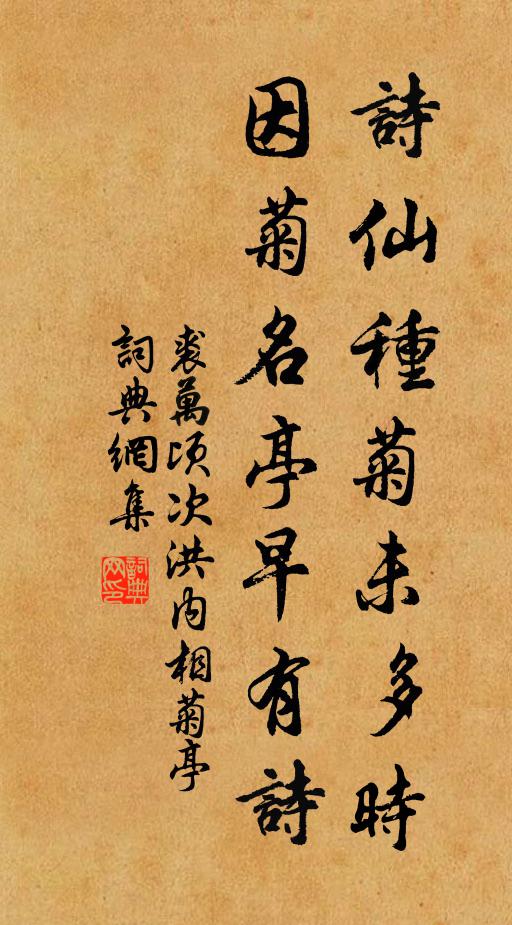 詩仙種菊未多時
因菊名亭早有詩
裘萬頃次洪内相菊亭
詞典網集
詞典网印